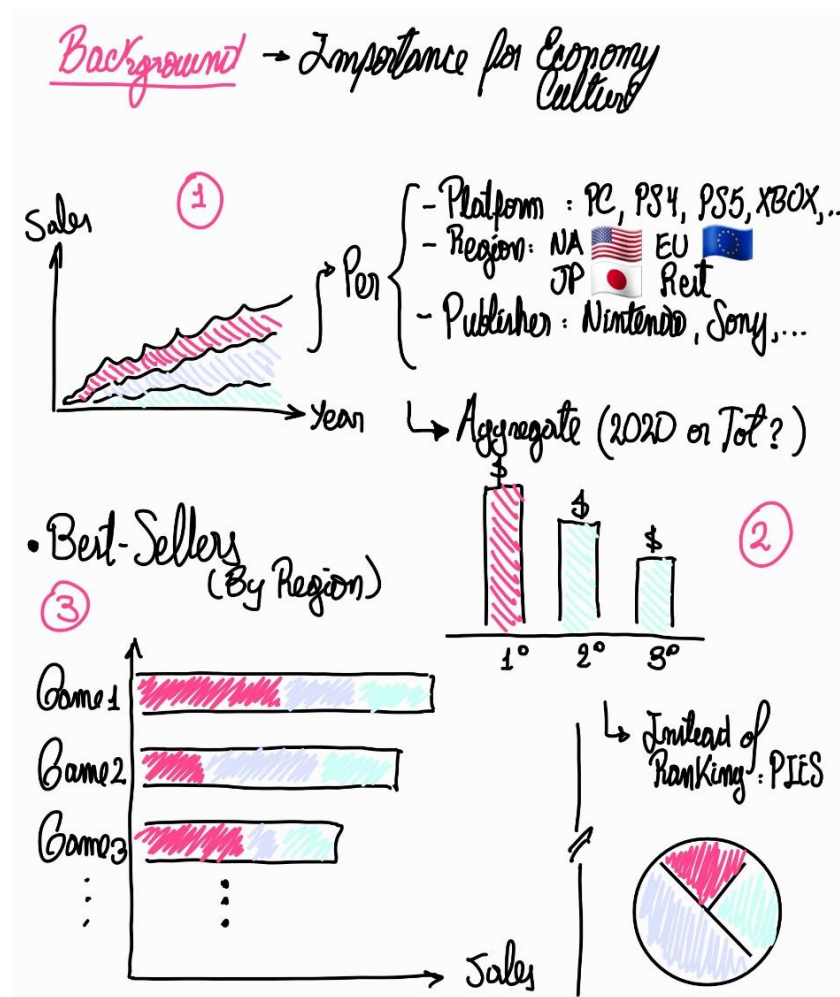 Background → Importance for Economy
Culture
1
Sales
Year
Per
- Platform : PC, PS4, PS5, XBOX,...
- Region: NA 🇺🇸 EU 🇪🇺
JP 🇯🇵 Rest
- Publisher : Nintendo, Sony,...
↳ Aggregate (2020 or Tot?)
$
$
$
1º
2º
3º
2
• Best-Sellers
(By Region)
3
Game 1
Game 2
Game 3
Sales
↳ Instead of
Ranking : PIES